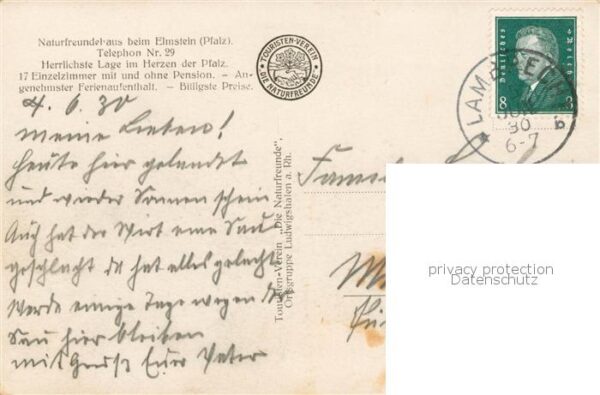 Naturfreundehaus beim Elmstein (Pfalz).
Telephon Nr. 29
Herrlichste Lage im Herzen der Pfalz.
17 Einzelzimmer mit und ohne Pension. — An-
genehmster Ferienaufenthalt. — Billigste Preise.
TOURISTEN-VEREIN
DIE NATURFREUNDE
Deutsches Reich
8 8
LAMBRECHT
30
6-7
a
4.6.30
meine Lieben!
Heute hier gelandet
und wieder Sonnenschein
Auch hat der Wirt eine Sau
geschlacht da hat alles gelacht
Werde einige Tage wegen der
Sau hier bleiben
mit Gruß Euer Vater
Touristen-Verein „Die Naturfreunde",
Ortsgruppe Ludwigshafen a. Rh.
privacy protection
Datenschutz